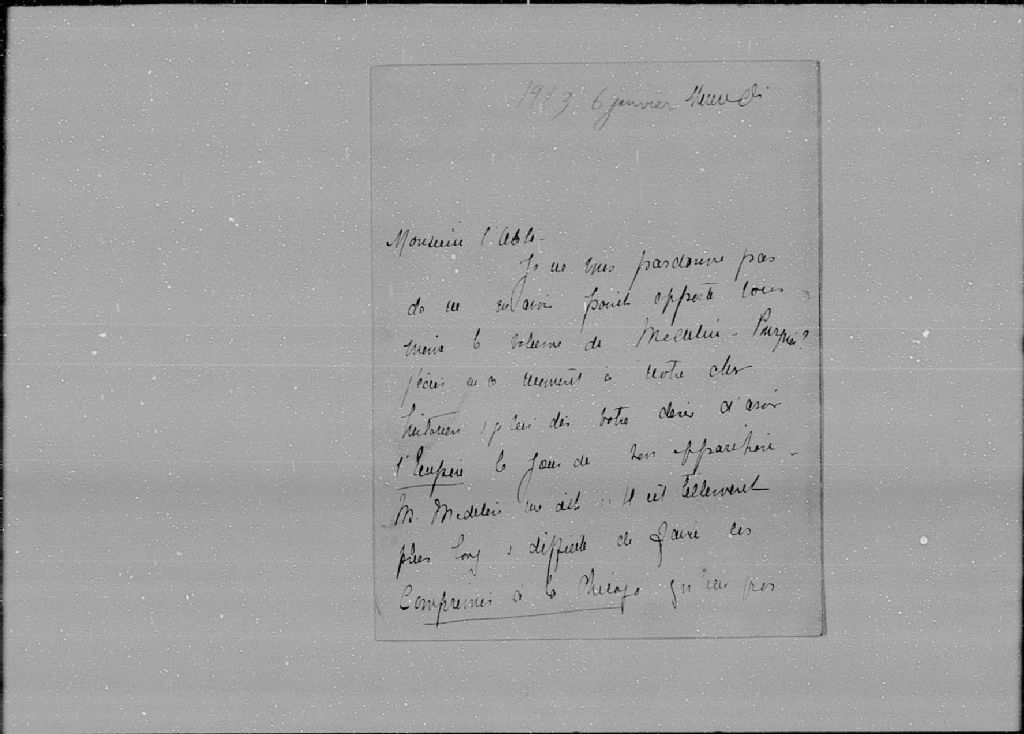 1913 6 janvier
Monsieur l'Abbé
Je ne me pardonne pas
de ne en avoir point apporté vous
même le volume de Madelin - Pourquoi?
j'écris en ce moment à notre cher
historien, je lui dis votre désir d'avoir
l'Empire le jour de son apparition -
M. Madelin me dit : Il est tellement
plus long & difficile de faire les
Comprimés à la qu'un gros